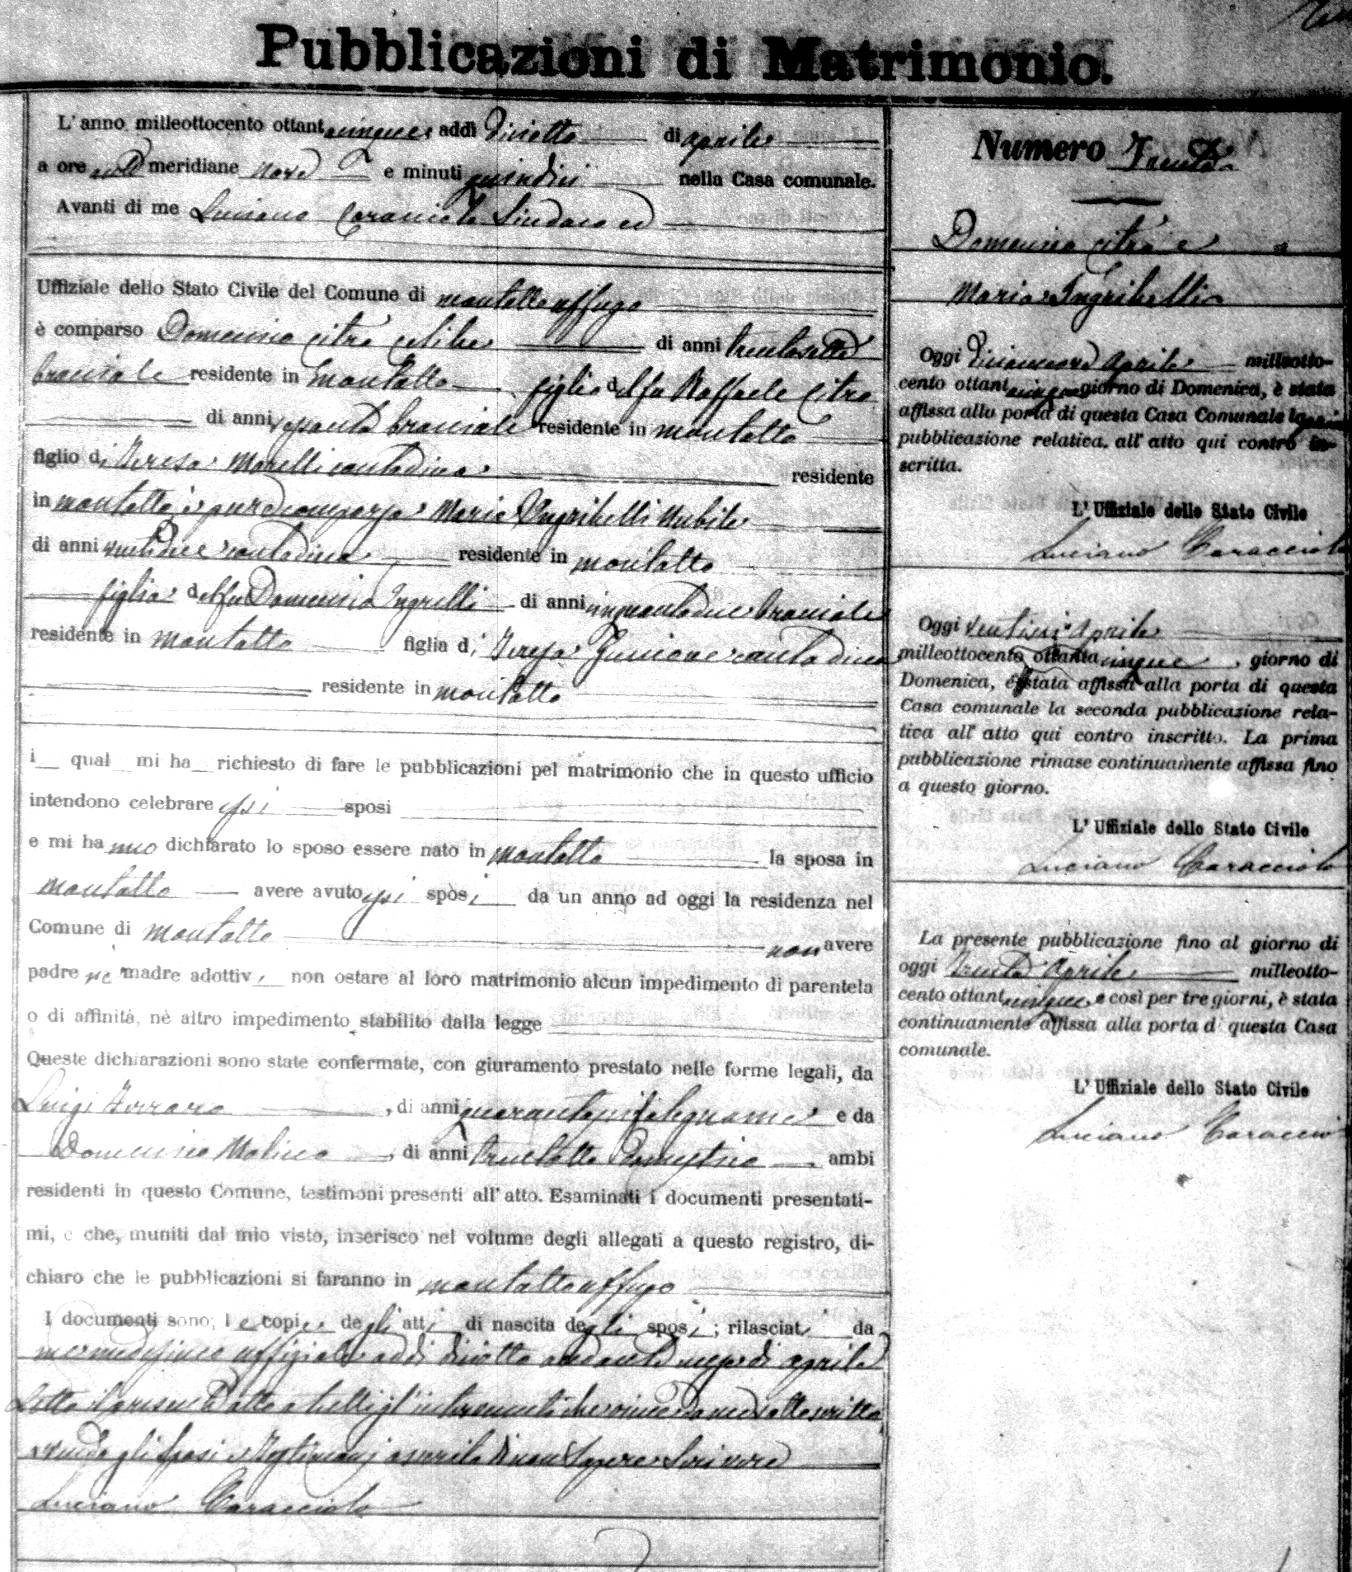 Pubblicazioni di Matrimonio.
L'anno milleottocento ottantacinque addì diciotto di aprile
a ore anti meridiane nove e minuti quindici nella Casa comunale.
Avanti di me Luciano Caracciolo Sindaco ed
Uffiziale dello Stato Civile del Comune di montalto uffugo
è comparso Domenico Citrà celibe di anni trentasette
bracciale residente in montalto figlio del fu Raffaele Citra
di anni bracciale residente in montalto
figlio di Teresa Morelli contadina residente
in montalto, è pure comparsa Maria Ingribelli Nubile
di anni ventidue contadina residente in montalto
figlia del fu Domenico Ingrelli di anni cinquantadue bracciale
residente in montalto figlia di Teresa contadina
residente in montalto
i qual mi ha richiesto di fare le pubblicazioni pel matrimonio che in questo ufficio
intendono celebrare essi sposi
e mi hanno dichiarato lo sposo essere nato in montalto la sposa in
montalto avere avuto essi sposi da un anno ad oggi la residenza nel
Comune di montalto non avere
padre ne madre adottivi, non ostare al loro matrimonio alcun impedimento di parentela
o di affinità, nè altro impedimento stabilito dalla legge
Queste dichiarazioni sono state confermate, con giuramento prestato nelle forme legali, da
Luigi Ferraro, di anni quarantasei falegname e da
Domenico Molino, di anni trentotto domestico ambi
residenti in questo Comune, testimoni presenti all'atto. Esaminati i documenti presentati-
mi, e che, muniti dal mio visto, inserisco nel volume degli allegati a questo registro, di-
chiaro che le pubblicazioni si faranno in montalto uffugo
I documenti sono; le copie degli atti di nascita degli sposi; rilasciati da
me medesimo uffiziale addì diciotto mese di aprile
Letto il presente atto a tutti gl'intervenuti che viene da me sottoscritto
avendo gli sposi e testimonj asserito di non sapere scrivere
Luciano Caracciolo
Numero Trenta
Domenico Citrà e
Maria Ingribelli
Oggi diciannove Aprile milleotto-
cento ottantacinque giorno di Domenica, è stata
affissa alla porta di questa Casa Comunale la prima
pubblicazione relatica. all'atto qui contro in-
scritta.
L'Uffiziale dello Stato Civile
Luciano Caracciolo
Oggi ventisei Aprile
milleottocento ottantacinque, giorno di
Domenica, è stata affissa alla porta di questa
Casa comunale la seconda pubblicazione rela-
tiva all'atto qui contro inscritto. La prima
pubblicazione rimase continuamente affissa fino
a questo giorno.
L'Uffiziale dello Stato Civile
Luciano Caracciolo
La presente pubblicazione fino al giorno di
oggi trenta Aprile milleotto-
cento ottantacinque e così per tre giorni, è stata
continuamente affissa alla porta d questa Casa
comunale.
L'Uffiziale dello Stato Civile
Luciano Caraccio